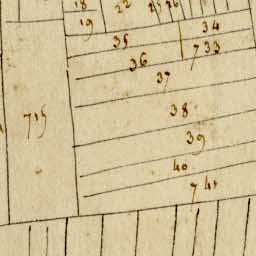 18 22 25 26
19 34
35 733
36
37
38
715
39
40
741